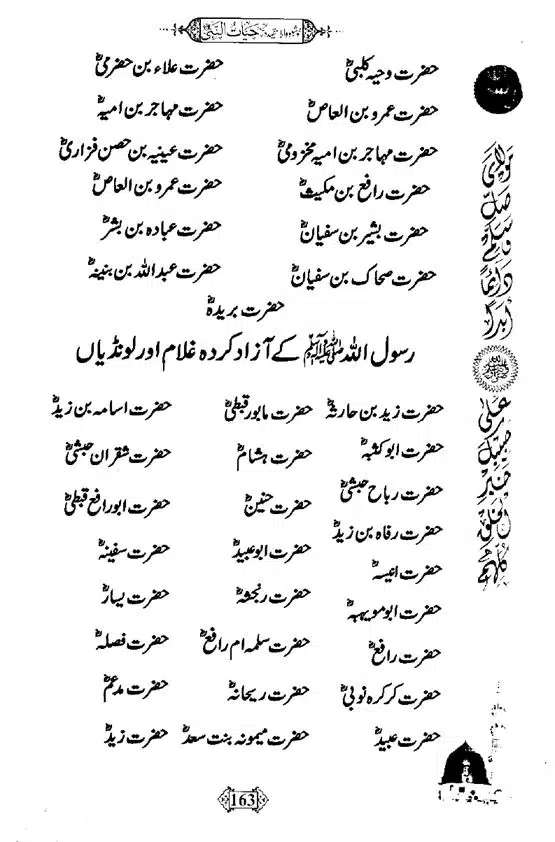 حیات النبیؐ
حضرت وحیہ کلبیؓ حضرت علاء بن حضرمیؓ
حضرت عمرو بن العاصؓ حضرت مہاجر بن امیہؓ
حضرت مہاجر بن امیہ مخزومیؓ حضرت عینیہ بن حصن فزاریؓ
حضرت رافع بن مکیثؓ حضرت عمرو بن العاصؓ
حضرت بشیر بن سفیانؓ حضرت عبادہ بن بشرؓ
حضرت صحاک بن سفیانؓ حضرت عبداللہ بن بنینہؓ
حضرت بریدہؓ
رسول اللہ ﷺ کے آزاد کردہ غلام اور لونڈیاں
حضرت زید بن حارثہؓ حضرت مابور قبطیؓ حضرت اسامہ بن زیدؓ
حضرت ابو کثبہؓ حضرت ہشامؓ حضرت شقران حبشیؓ
حضرت رباح حبشیؓ حضرت حنینؓ حضرت ابورافع قبطیؓ
حضرت رفاہ بن زیدؓ حضرت ابوعبیدؓ حضرت سفینہؓ
حضرت اعیسہؓ حضرت رنجثہؓ حضرت یسارؓ
حضرت ابو مویہبہؓ حضرت سلمہ ام رافعؓ حضرت فصلہؓ
حضرت رافعؓ حضرت ریحانہؓ حضرت مدعمؓ
حضرت کرکرہ نوبیؓ حضرت میمونہ بنت سعدؓ حضرت زیدؓ
حضرت عبیدؓ
مولای صل وسلم دائما ابدا
علی حبیبک خیر الخلق کلھم
163